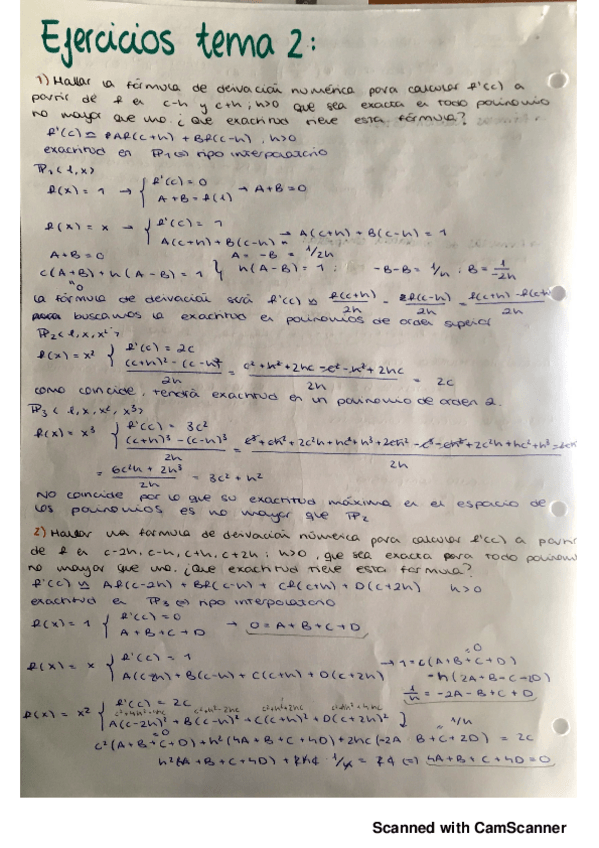 Ejercicios tema 2:
1) Hallar la fórmula de derivación numérica para calcular f'(c) a
partir de f en c-h y c+h; h>0 que sea exacta en todo polinomio
no mayor que uno. ¿Que exactitud tiene esta fórmula?
f'(c) ≃ Af(c+h) + Bf(c-h), h>0
exactitud en ℙ1 (=) tipo interpolatorio
ℙ1 <1,x>
f(x) = 1 → { f'(c) = 0
A+B = f(1) → A+B=0
f(x) = x → { f'(c) = 1
A(c+h) + B(c-h) → A(c+h) + B(c-h) = 1
A+B=0 A = -B = 1/2h
c(A+B) + h(A-B) = 1 } h(A-B) = 1 ; -B-B = 1/h ; B = 1/-2h
=0
la fórmula de derivación será f'(c) ≃ f(c+h)/2h - f(c-h)/2h = f(c+h) - f(c-h)/2h
buscamos la exactitud en polinomios de orden superior
ℙ2 <1, x, x²>
f(x) = x² { f'(c) = 2c
(c+h)² - (c-h)²/2h = c²+h²+2hc-c²-h²+2hc/2h = 2c
como coincide, tendrá exactitud en un polinomio de orden 2.
ℙ3 <1, x, x², x³>
f(x) = x³ { f'(c) = 3c²
(c+h)³ - (c-h)³/2h
= 6c²h + 2h³/2h = 3c² + h²
No coincide por lo que su exactitud máxima en el espacio de
los polinomios es no mayor que ℙ2
2) Hallar una formula de derivación númerica para calcular f'(c) a partir
de f en c-2h, c-h, c+h, c+2h; h>0, que sea exacta para todo polinomio
no mayor que uno. ¿Que exactitud tiene esta formula?
f'(c) ≃ Af(c-2h) + Bf(c-h) + Cf(c+h) + D(c+2h) h>0
exactitud en ℙ3 (=) tipo interpolatorio
f(x) = 1 { f'(c) = 0
A+B+C+D → 0=A+B+C+D
f(x) = x { f'(c) = 1
A(c-2h) + B(c-h) + C(c+h) + D(c+2h) → 1=c(A+B+C+D)
=0
-h(2A+B-C-2D)
1/h = -2A-B+C+2D
f(x) = x² { f'(c) = 2c
A(c-2h)² + B(c-h)² + C(c+h)² + D(c+2h)² }
c²(A+B+C+D) + h²(4A+B+C+4D) + 2hc(-2A-B+C+2D) = 2c
=0 1/h
4A+B+C+4D=0
Scanned with CamScanner